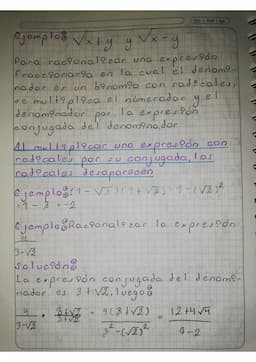 Ejemplo: √x+y y √x-y
Para racionalizar una expresión
Fraccionaria en la cual el denomi-
nador es un binomio con radicales,
se multiplica el númerador y el
denominador por la expresión
conjugada del denominador
Al multiplicar una expresión con
radicales por su conjugada, los
radicales desaparecen
Ejemplo: (1-√3)(1+√3)=1-(√3)²
=1-3=-2
Ejemplo: Racionalizar la expresión
4
3-√2
Solución:
La expresión conjugada del denomi-
nador es 3+√2, luego:
4/3-√2 • 3+√2/3+√2 = 4(3+√2)/3²-(√2)² = 12+4√4/9-2